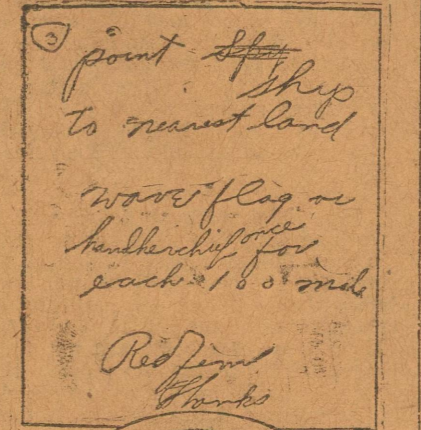 3
point
ship
to nearest land
wave flag or
handkerchief once for
each 100 mile
Red Jim
Thanks